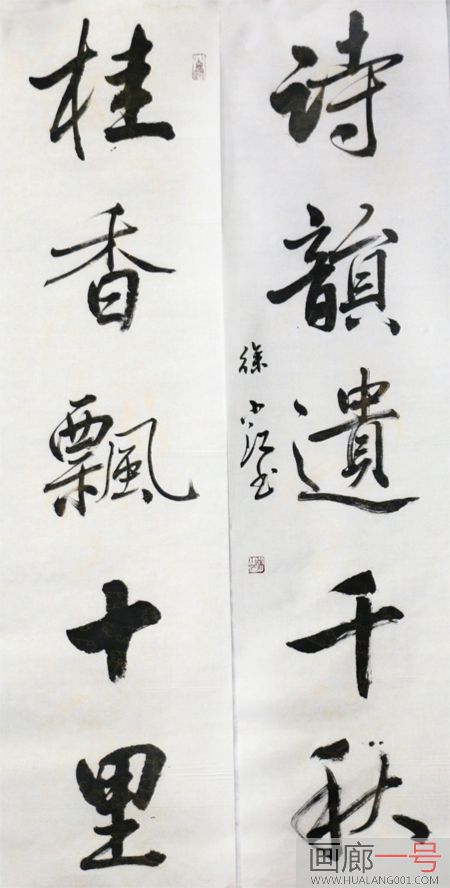 桂香飄十里
詩韻遺千秋
徐小江书
画廊一号
WWW.HUALANG001.COM